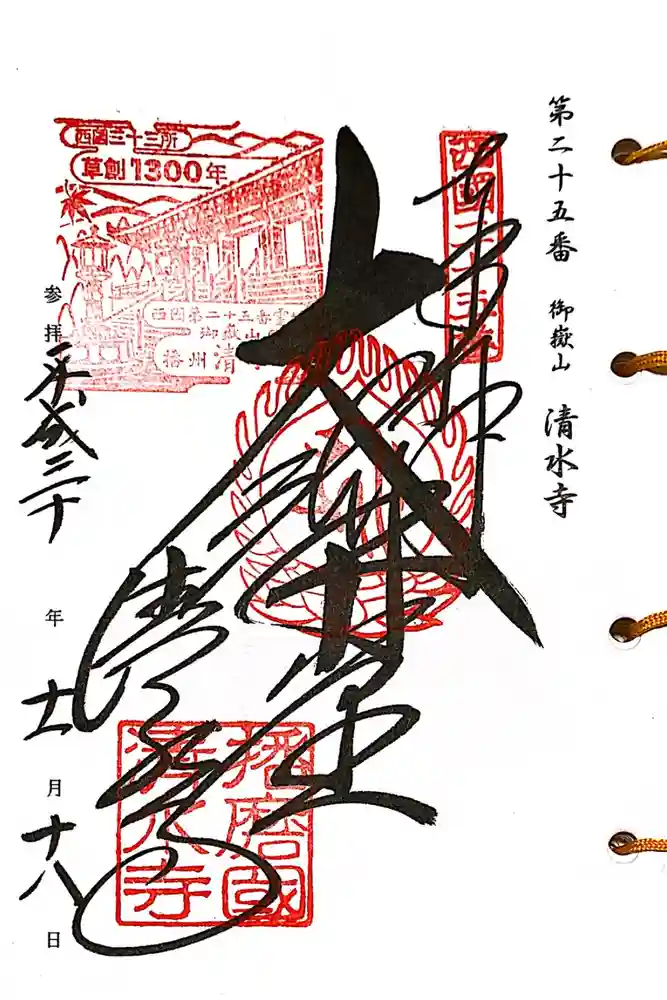 第二十五番 御嶽山 清水寺
西國三十三所
奉拝
大悲殿
清水寺
西国三十三所
草創1300年
西国第二十五番霊
御嶽山
播州 清
播磨國
清水寺
参拝 平成三十年 十一月 十八日